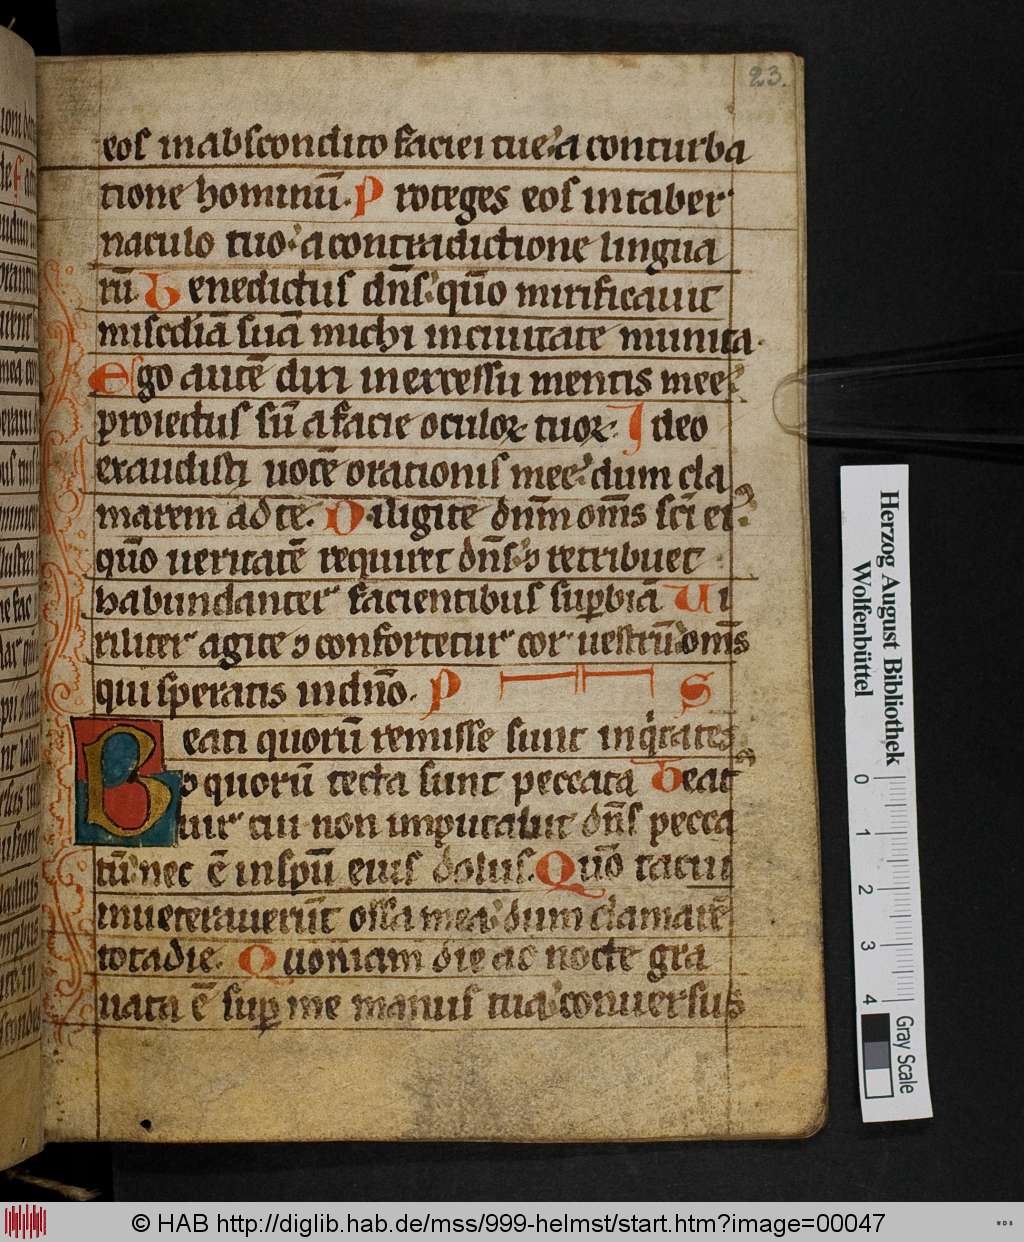 23.
eos in abscondito faciei tue. a conturba
tione hominū. Proteges eos in taber
naculo tuo. a contradictione lingua
rū. Benedictus dn̄s. qūo mirificauit
misc̄diā suā michi in ciuitate munita.
Ego autē dixi in excessu mentis mee.
proiectus sū a facie oculoꝝ tuoꝝ. Ideo
exaudisti uocē orationis mee. dum cla
marem ad te. Diligite dn̄m om̄s sc̄i ei.
qūo ueritatē requiret dn̄s. ⁊ retribuet
habundanter facientibus sup̄biā Ui
riliter agite ⁊ confortetur cor uestrū. om̄s
qui speratis in dn̄o. P S
Beati quorū remisse sunt iniq̇tates
⁊ quorū tecta sunt peccata Beat
uir cui non imputabit dn̄s pecca
tū. nec ē in spū eius dolus. Qūo tacui
inueterauerūt ossa mea. dum clamarē
tota die. Quoniam die ac nocte gra
uata ē sup me manus tua. conuersus
Herzog August Bibliothek
Wolfenbüttel
0 1 2 3 4
Gray Scale
© HAB http://diglib.hab.de/mss/999-helmst/start.htm?image=00047